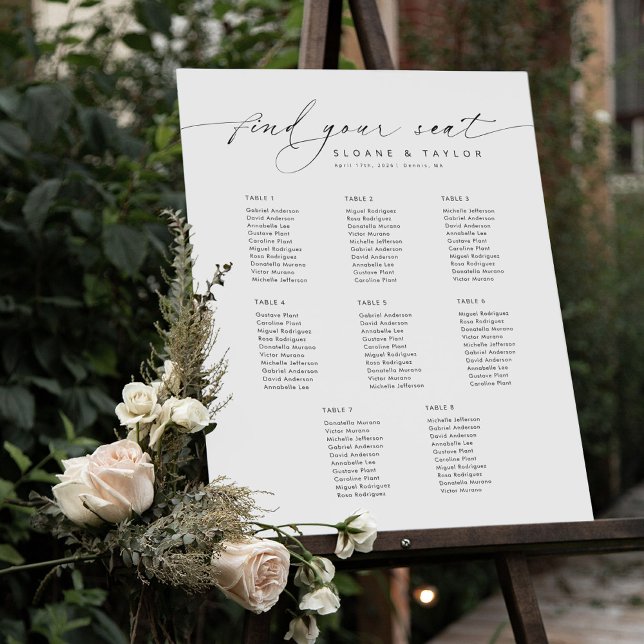 find your seat
SLOANE & TAYLOR
April 17th, 2026 | Dennis, MA
TABLE 1
Gabriel Anderson
David Anderson
Annabelle Lee
Gustave Plant
Caroline Plant
Miguel Rodriguez
Rosa Rodriguez
Donatella Murano
Victor Murano
Michelle Jefferson
TABLE 2
Miguel Rodriguez
Rosa Rodriguez
Donatella Murano
Victor Murano
Michelle Jefferson
Gabriel Anderson
David Anderson
Annabelle Lee
Gustave Plant
Caroline Plant
TABLE 3
Michelle Jefferson
Gabriel Anderson
David Anderson
Annabelle Lee
Gustave Plant
Caroline Plant
Miguel Rodriguez
Rosa Rodriguez
Donatella Murano
Victor Murano
TABLE 4
Gustave Plant
Caroline Plant
Miguel Rodriguez
Rosa Rodriguez
Donatella Murano
Victor Murano
Michelle Jefferson
Gabriel Anderson
David Anderson
Annabelle Lee
TABLE 5
Gabriel Anderson
David Anderson
Annabelle Lee
Gustave Plant
Caroline Plant
Miguel Rodriguez
Rosa Rodriguez
Donatella Murano
Victor Murano
Michelle Jefferson
TABLE 6
Miguel Rodriguez
Rosa Rodriguez
Donatella Murano
Victor Murano
Michelle Jefferson
Gabriel Anderson
David Anderson
Annabelle Lee
Gustave Plant
Caroline Plant
TABLE 7
Donatella Murano
Victor Murano
Michelle Jefferson
Gabriel Anderson
David Anderson
Annabelle Lee
Gustave Plant
Caroline Plant
Miguel Rodriguez
Rosa Rodriguez
TABLE 8
Michelle Jefferson
Gabriel Anderson
David Anderson
Annabelle Lee
Gustave Plant
Caroline Plant
Miguel Rodriguez
Rosa Rodriguez
Donatella Murano
Victor Murano